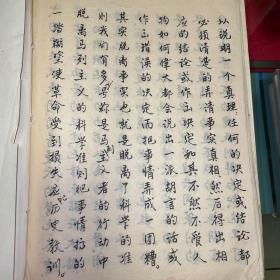 以说明一个真理任何的决定或结论都
必须清楚的弄清事实真相然后得出相
应的结论或作出决定如其不然不管人
物如何伟大都会说出一派胡言的话或
作出错误的决定而把事情弄成一团糟。
其实脱离事实也就是脱离了科学的准
则我们有多号称是马主义者的行动中
脱离马列主义的科学准则把事情搞的
一踏糊塗使革命受到损失应记历史教训。